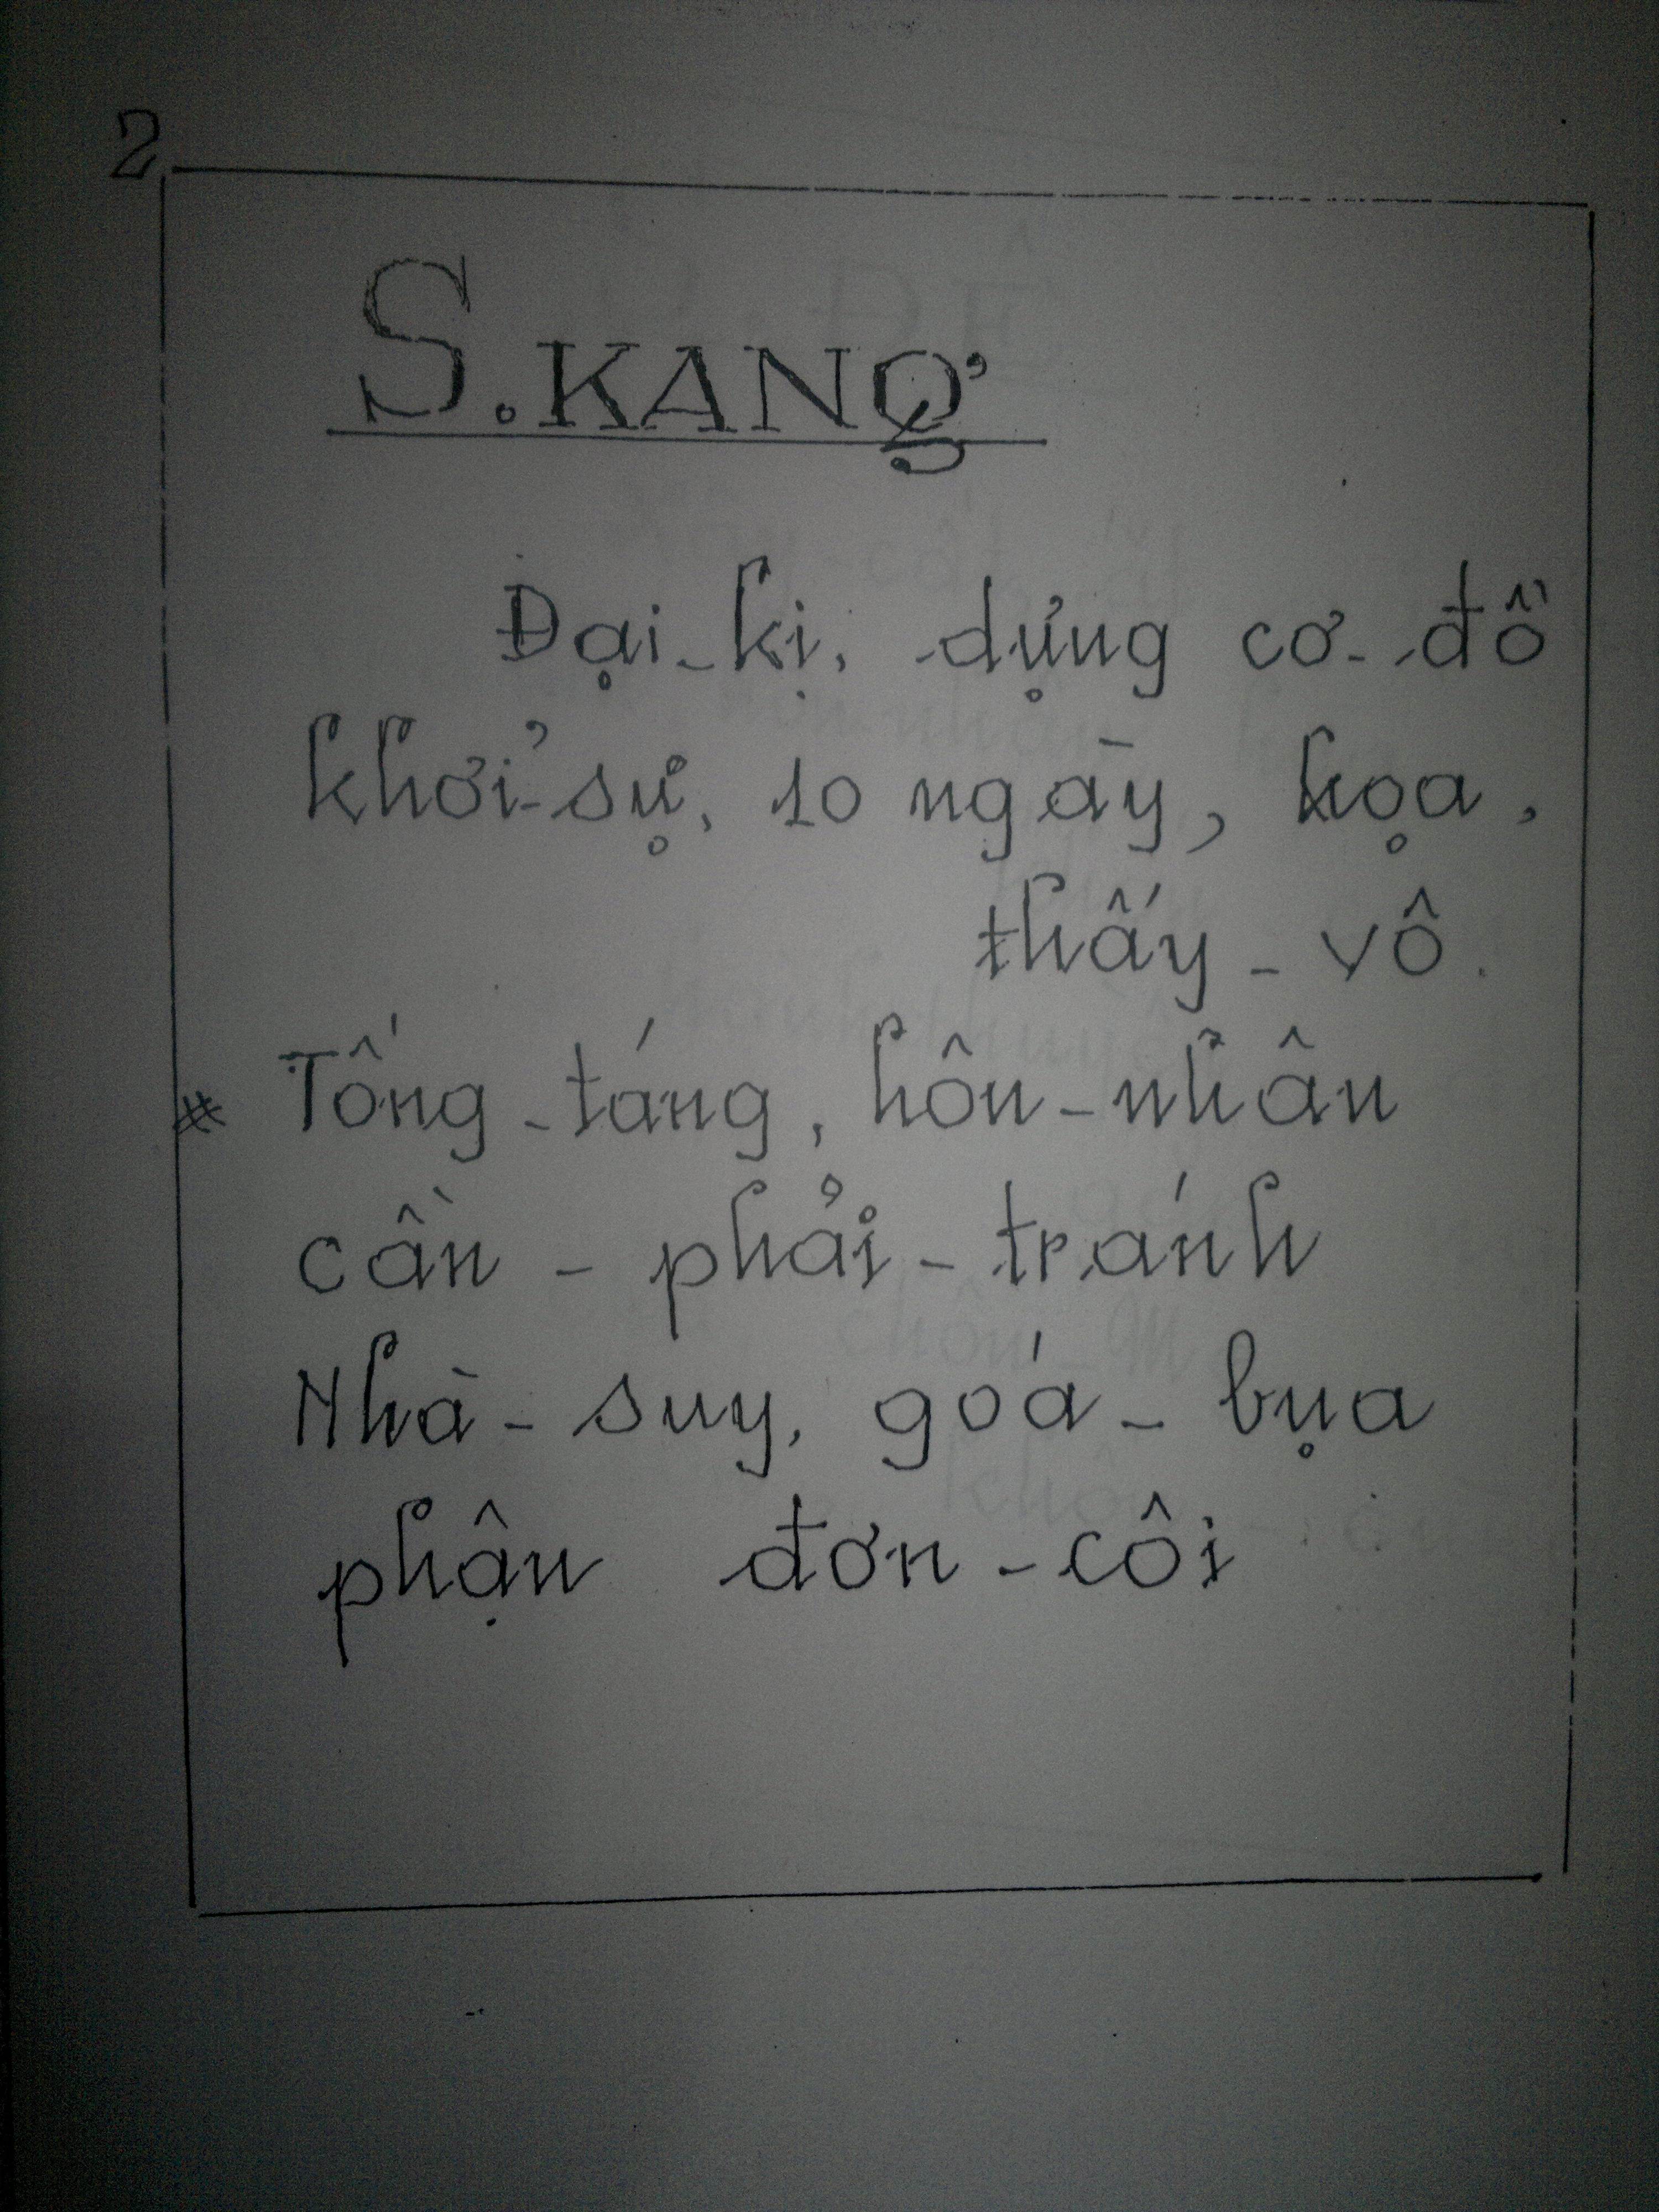 2
S. KANG
Đại-kị, dựng cơ-đồ
khởi-sự, 10 ngày, họa,
thấy-vô.
# Tống-táng, hôn-nhân
cần-phải-tránh
Nhà-suy, goá-bụa
phận đơn-côi